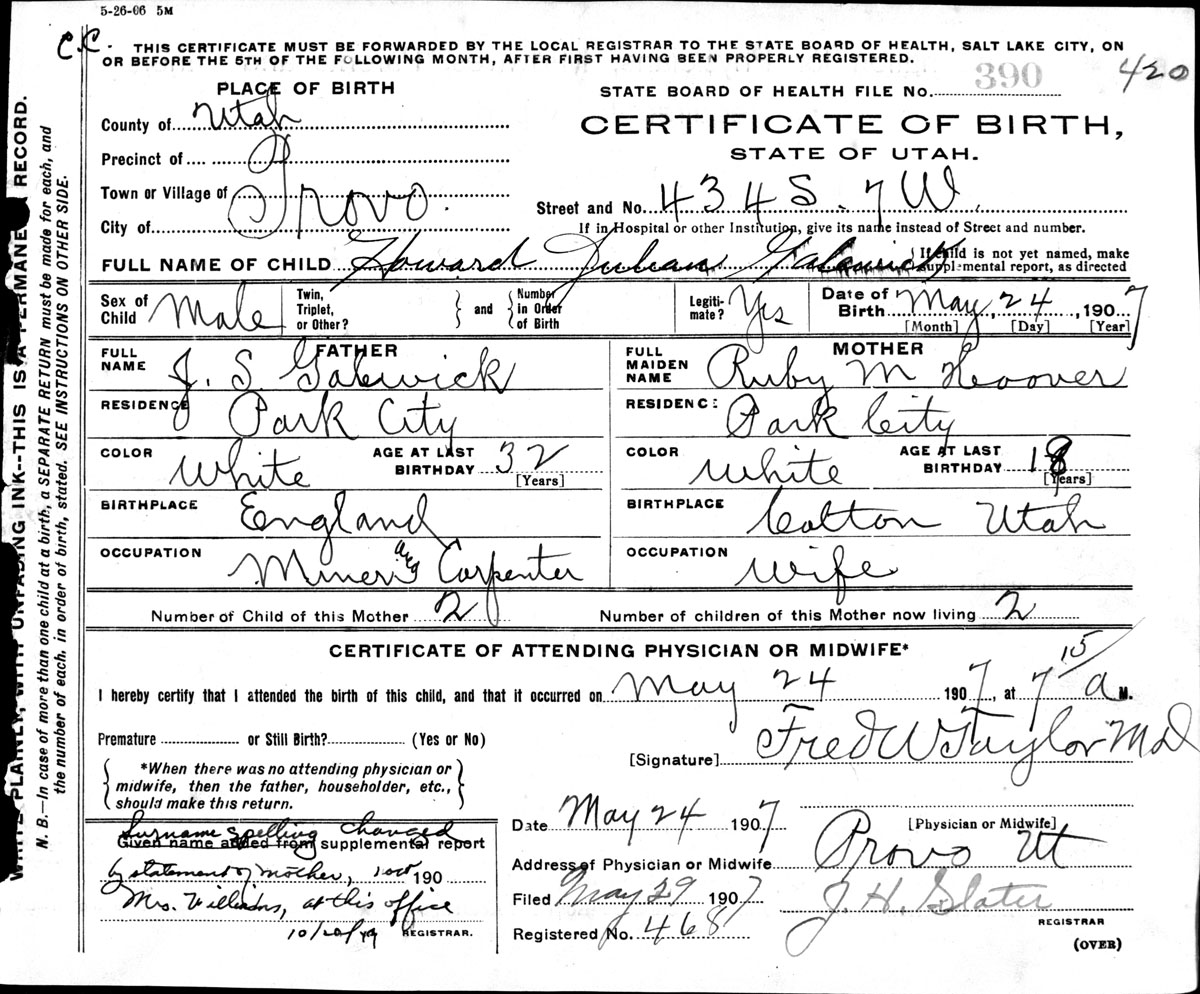 5-26-06 5M
C.C.
THIS CERTIFICATE MUST BE FORWARDED BY THE LOCAL REGISTRAR TO THE STATE BOARD OF HEALTH, SALT LAKE CITY, ON
OR BEFORE THE 5TH OF THE FOLLOWING MONTH, AFTER FIRST HAVING BEEN PROPERLY REGISTERED.
420
PLACE OF BIRTH
STATE BOARD OF HEALTH FILE No. 390
County of Utah
CERTIFICATE OF BIRTH,
Precinct of
STATE OF UTAH.
Town or Village of
City of Provo.
Street and No. 434 S. 7 W.
If in Hospital or other Institution, give its name instead of Street and number.
FULL NAME OF CHILD Howard Julian
If child is not yet named, make
supplemental report, as directed
Sex of Child Male
Twin, Triplet, or Other?
and
Number in Order of Birth
Legiti-mate? Yes
Date of Birth May 24, 1907
[Month] [Day] [Year]
FATHER
FULL NAME J. S. Galewick
RESIDENCE Park City
COLOR White
AGE AT LAST BIRTHDAY 32
[Years]
BIRTHPLACE England
OCCUPATION Miner and Carpenter
MOTHER
FULL MAIDEN NAME Ruby M Hoover
RESIDENC: Park City
COLOR White
AGE AT LAST BIRTHDAY 18
[Years]
BIRTHPLACE Colton Utah
OCCUPATION Wife
Number of Child of this Mother 2
Number of children of this Mother now living 2
CERTIFICATE OF ATTENDING PHYSICIAN OR MIDWIFE*
I hereby certify that I attended the birth of this child, and that it occurred on May 24 1907, at 7 15/ a M.
Premature or Still Birth? (Yes or No)
[Signature] Fred W Taylor MD
*When there was no attending physician or
midwife, then the father, householder, etc.,
should make this return.
Date May 24 1907
[Physician or Midwife]
Address of Physician or Midwife Provo Ut
Filed May 29 1907
J. H. Slater
REGISTRAR
Registered No. 468
(OVER)
Surname spelling changed
Given name added from supplemental report
by statement of mother, 190
Mrs. at this office
10/20/49 REGISTRAR.
WRITE PLAINLY, WITH UNFADING INK--THIS IS A PERMANENT RECORD.
N. B.—In case of more than one child at a birth, a SEPARATE RETURN must be made for each, and
the number of each, in order of birth, stated. SEE INSTRUCTIONS ON OTHER SIDE.